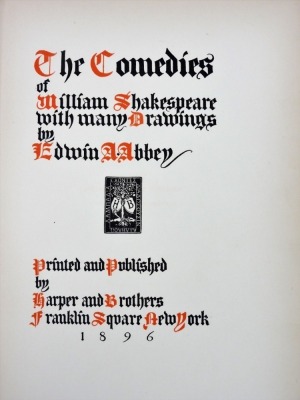 The Comedies
of
William Shakespeare
with many Drawings
by
Edwin A Abbey
Printed and Pvblished
by
Harper and Brothers
Franklin Sqvare New York
1896